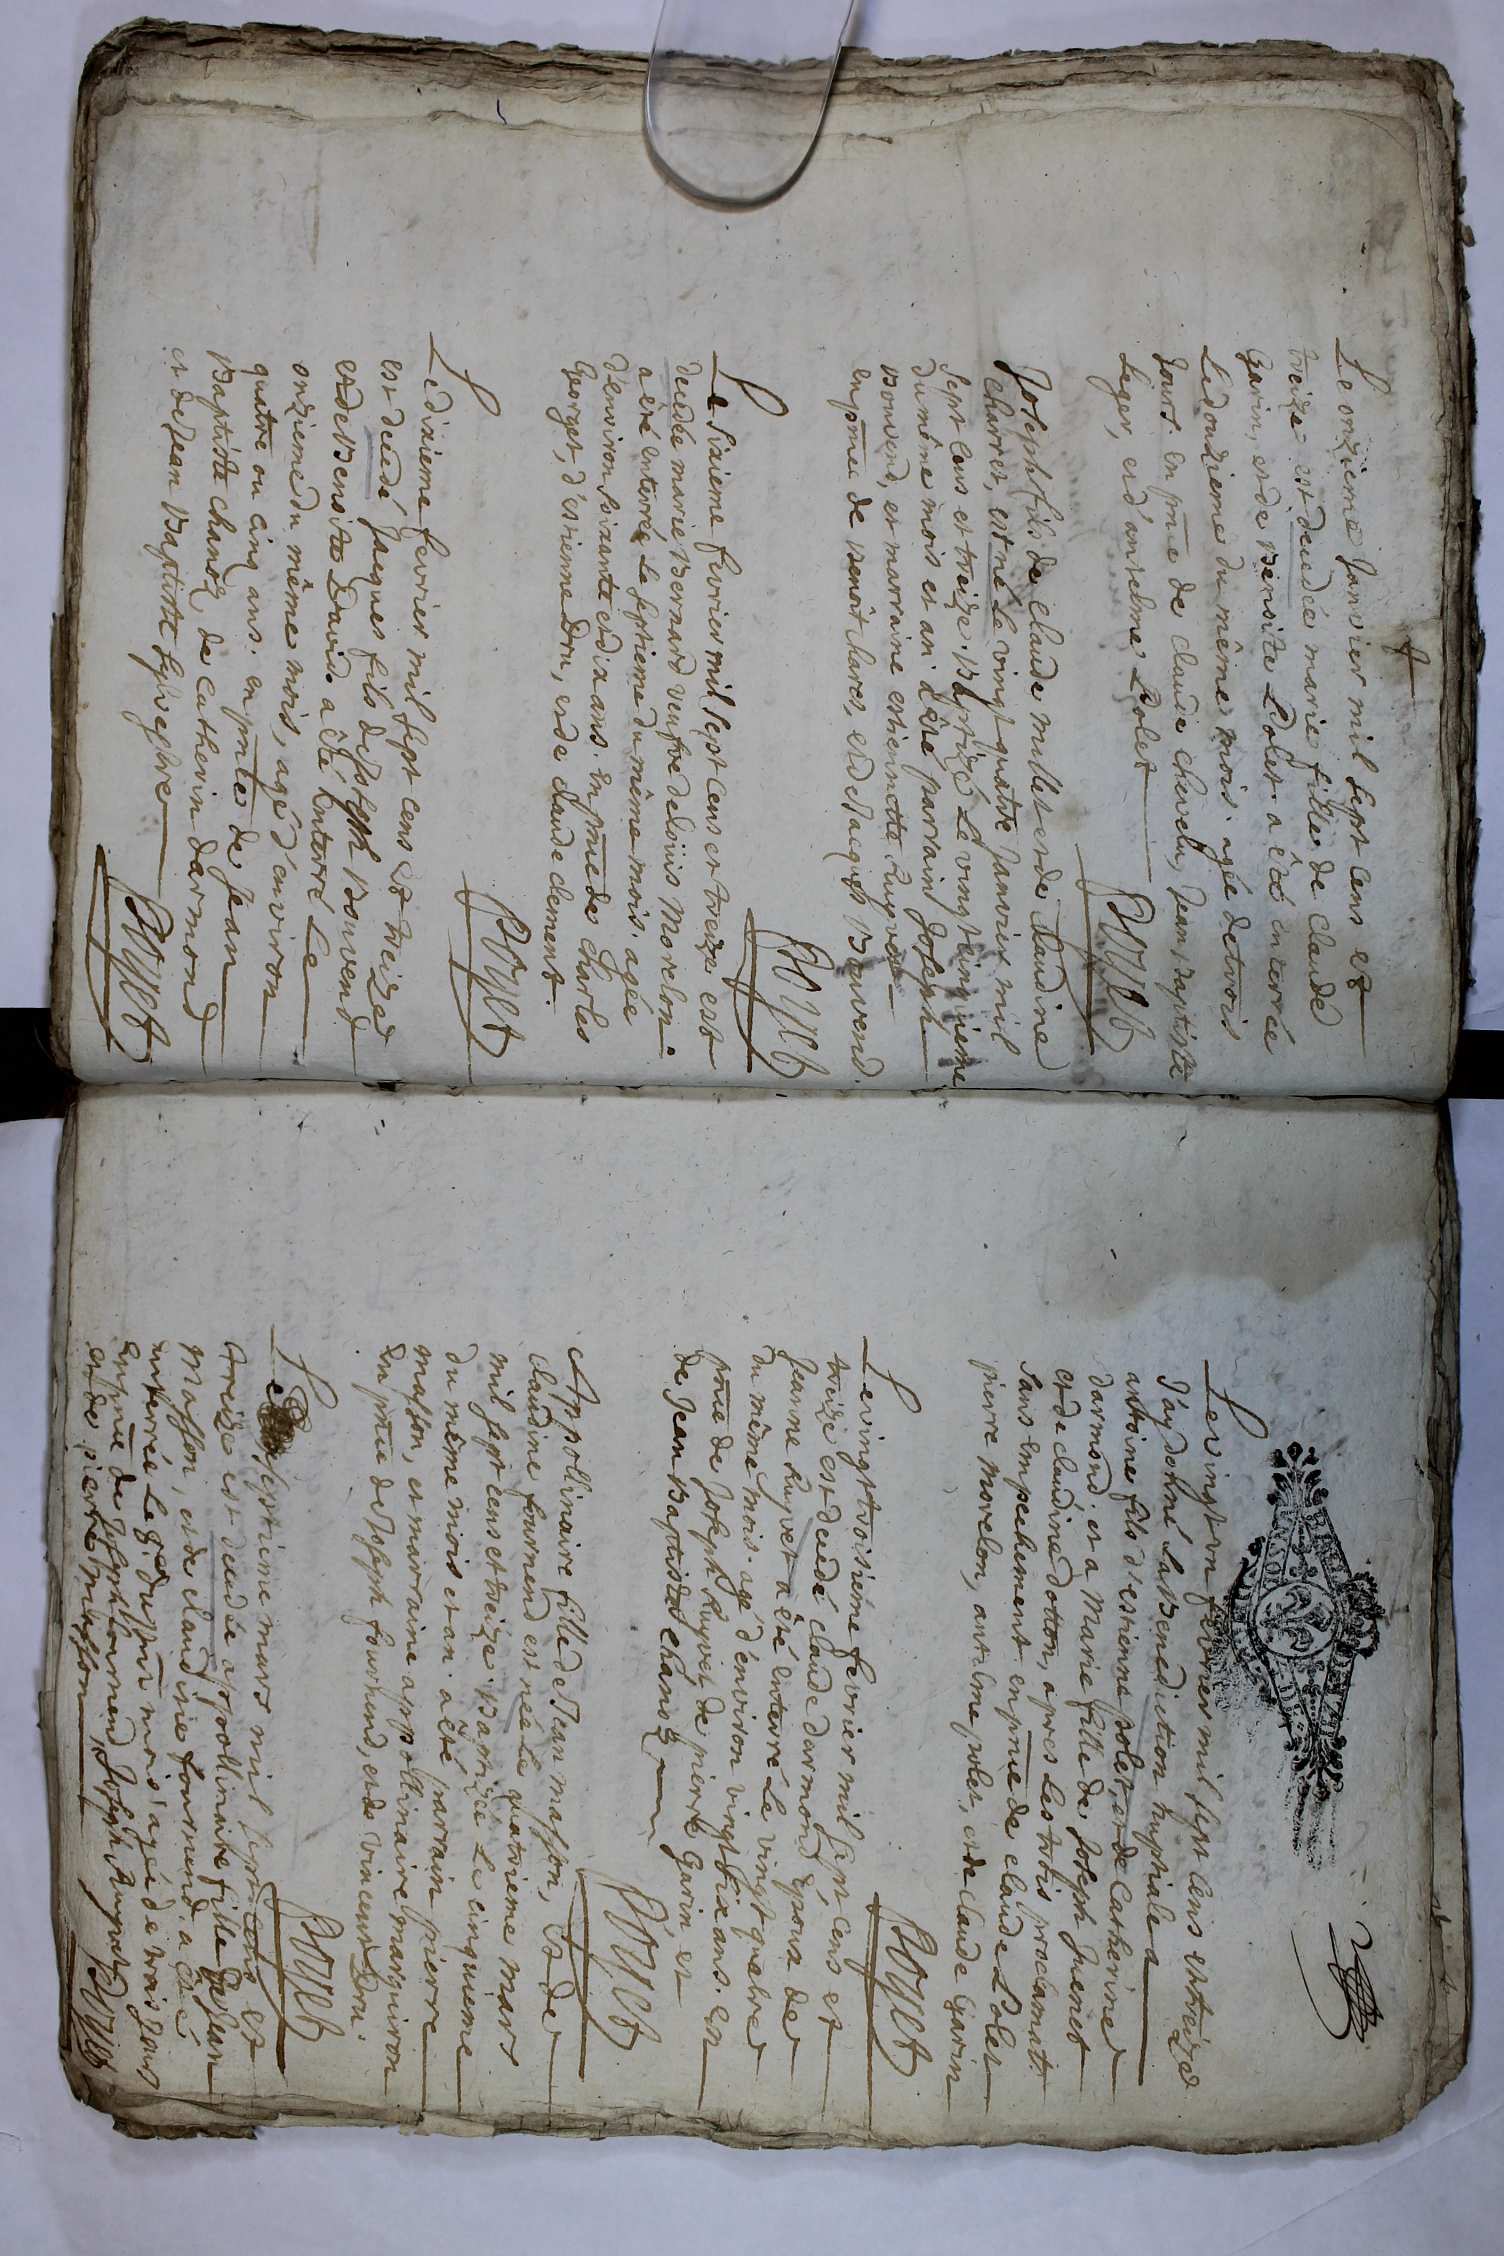 Le onzième Janvier mil sept cens et
treize est decedée marie fille de Claude
Garin, et de Benoite Polet. a été enterrée
Le douzieme du même mois. agée de trois
Jours. en pñce de claude chevelu, Jean Baptiste
Leger, et d'anthelme Polet
Boyet
Joseph fils de claude millet et de claudine
charret, est né Le vingt quatre Janvier mil
sept cens et treize. Baptizé Le vingt cinquieme
du même mois et an. a été parrain Joseph
Bouvend, et marraine estiennette Ruyvet
en pñce de Benoît hares, et de Jacques Bouvend.
Boyet
Le sixieme fevrier mil sept cens et treize est
decedée marie Bernard veufve de Loüis Morelon.
a été enterrée Le septieme du même mois. agée
d'environ soixante et dix ans. en pñce de charles
Georget, d'estienne Dru, et de claude clement.
Boyet
Le dixieme fevrier mil sept cens et treize
est decedé Jacques fils de Joseph Bouvend
et de Benoite David. a été enterré Le
onzieme du même mois, agé d'environ
quatre ou cinq ans. en pñce de Jean
Baptiste chanoz, de Cathevin Darmond
et de Jean Baptiste Sylvestre
Boyet
Le vingt un fevrier mil sept cens et treize
J'ay donné La Benediction nuptiale a
antoine fils d'estienne polet, et de Catherine
Darmond. et a Marie fille de Joseph Guenet
et de claudine dotton, apres Les trois proclamat.
sans empechement. en pñce de claude Polet
pierre morelon, anthelme polet, et de claude Garin
Boyet
Le vingt troisième fevrier mil sept cens et
treize est decedé claude Darmond époux de
Jeanne Ruyvet a été enterré Le vingt quatre
du même mois. agé d'environ vingt six ans. en
pñce de Joseph Ruyvet de pierre Garin, et
de Jean Baptiste chanoz
Boyet
Appollinaire fille de Jean masson, et de
claudine fournend est née Le quatrieme mars
mil sept cens et treize. Baptizée Le cinquieme
du même mois et an. a été parrain pierre
masson, et marraine appollinaire marguiron
en pñce de Joseph fournend, et de vincent Dru.
Boyet
Le septième mars mil sept cens et
treize est decedée appollinaire fille de Jean
Masson, et de claudine fournend. a été
enterrée Le 8e. du pñt mois agée de trois Jours
en pñce de Joseph fournend, Joseph Ruyvet
et de pierre masson
Boyet